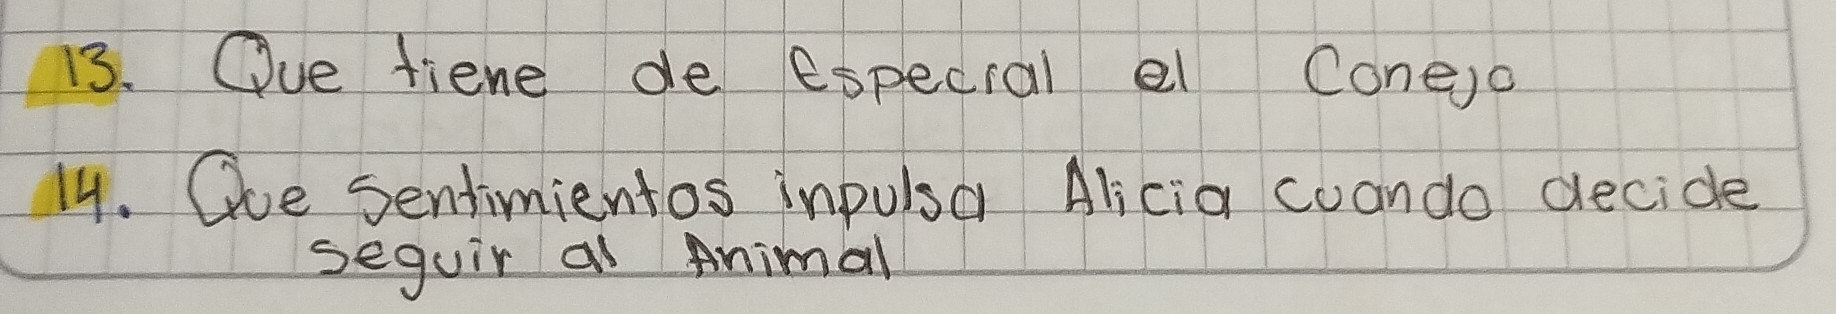 13. Que tiene de especial el Conejo
14. Que sentimientos inpulsa Alicia cuando decide
seguir al Animal